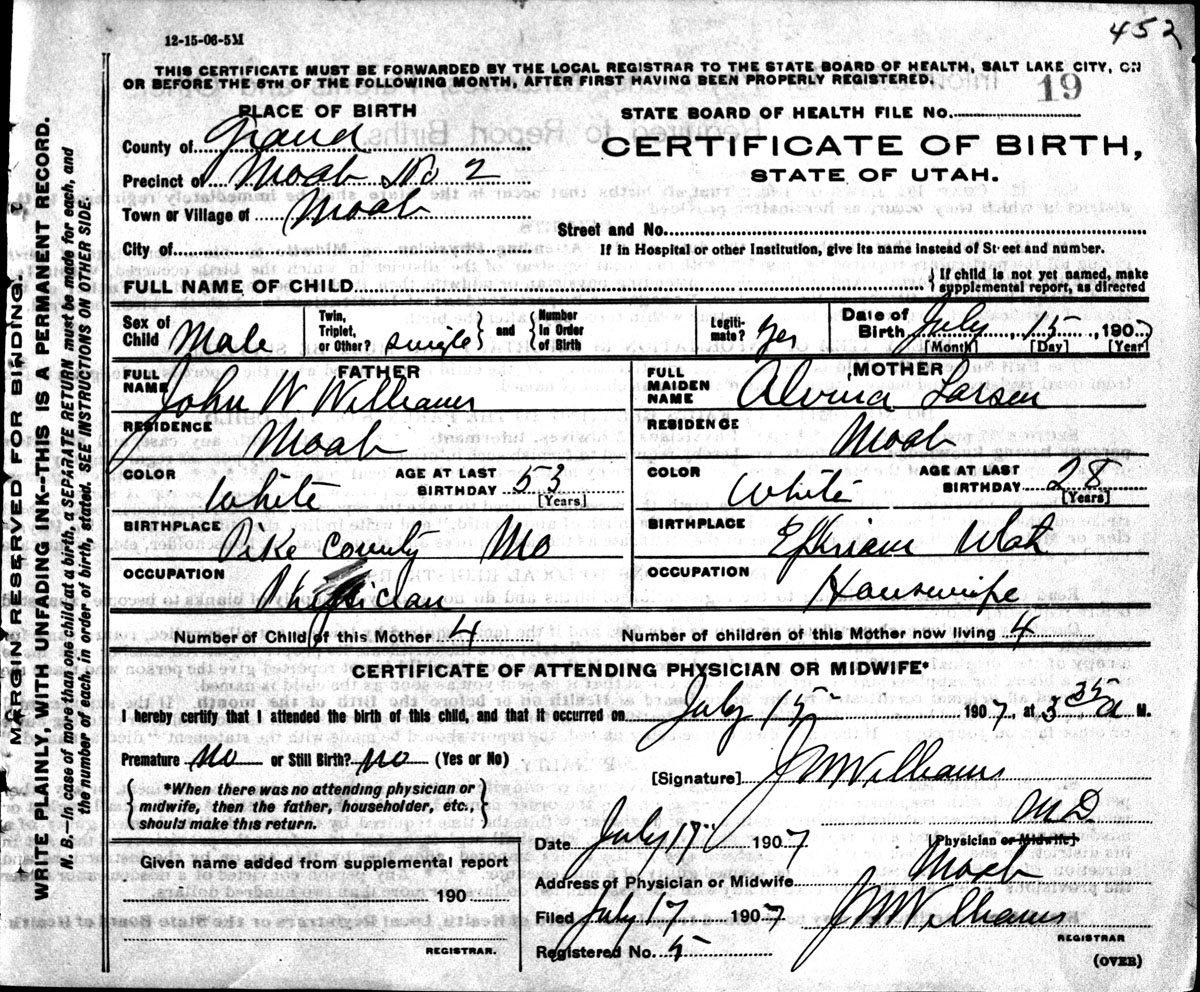 452
12-15-06-5M
THIS CERTIFICATE MUST BE FORWARDED BY THE LOCAL REGISTRAR TO THE STATE BOARD OF HEALTH, SALT LAKE CITY, ON
OR BEFORE THE 5TH OF THE FOLLOWING MONTH, AFTER FIRST HAVING BEEN PROPERLY REGISTERED.
PLACE OF BIRTH
County of Grand
Precinct of Moab No 2
Town or Village of Moab
City of
STATE BOARD OF HEALTH FILE No. 19
CERTIFICATE OF BIRTH,
STATE OF UTAH.
Street and No.
If in Hospital or other Institution, give its name instead of Street and number.
FULL NAME OF CHILD
If child is not yet named, make
supplemental report, as directed
Sex of Child Male
Twin, Triplet, or Other? single
and Number in Order of Birth
Legitimate? Yes
Date of Birth July 15, 1907
[Month] [Day] [Year]
FATHER
FULL NAME John W Williams
RESIDENCE Moab
COLOR White AGE AT LAST BIRTHDAY 53
[Years]
BIRTHPLACE Pike County Mo
OCCUPATION Physician
MOTHER
FULL MAIDEN NAME Alvina Larsen
RESIDENCE Moab
COLOR White AGE AT LAST BIRTHDAY 28
[Years]
BIRTHPLACE Ephriam Utah
OCCUPATION Housewife
Number of Child of this Mother 4 Number of children of this Mother now living 4
CERTIFICATE OF ATTENDING PHYSICIAN OR MIDWIFE*
I hereby certify that I attended the birth of this child, and that it occurred on July 15 1907, at 3 35 a M.
Premature No or Still Birth? No (Yes or No)
*When there was no attending physician or
midwife, then the father, householder, etc.,
should make this return.
[Signature] J W Williams
M.D.
[Physician or Midwife]
Date July 17 1907
Address of Physician or Midwife Moab
Filed July 17 1907 J W Williams
REGISTRAR
Registered No. 5
(OVER)
Given name added from supplemental report
190
REGISTRAR.
MARGIN RESERVED FOR BINDING.
WRITE PLAINLY, WITH UNFADING INK--THIS IS A PERMANENT RECORD.
N. B.—In case of more than one child at a birth, a SEPARATE RETURN must be made for each, and
the number of each, in order of birth, stated. SEE INSTRUCTIONS ON OTHER SIDE.